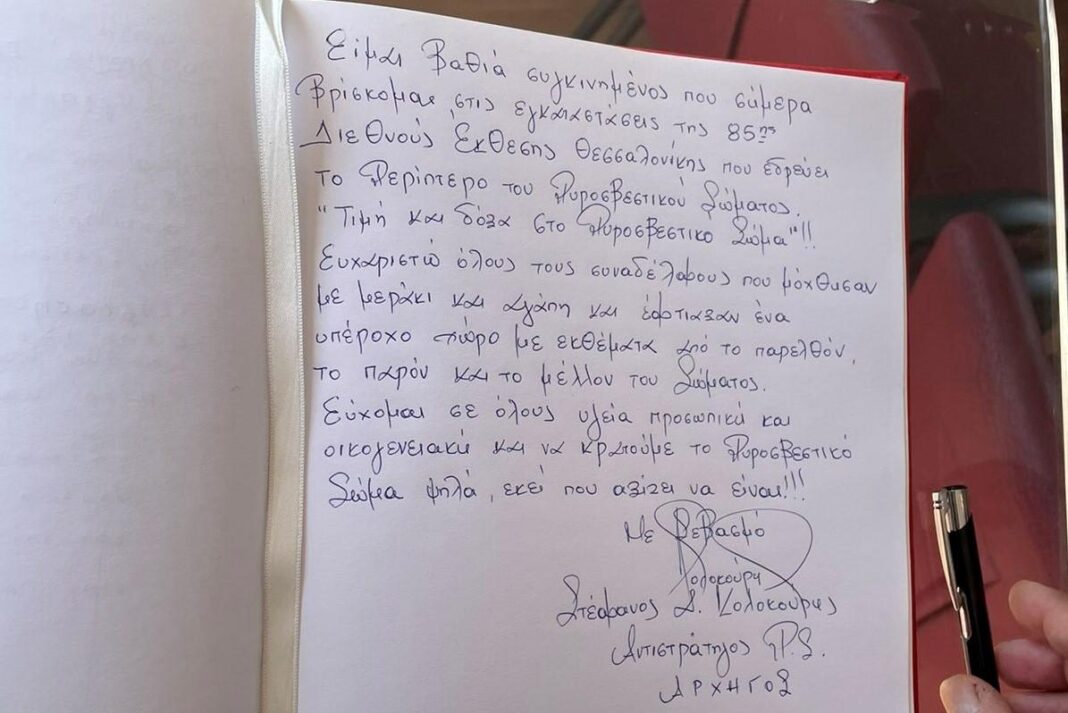 Είμαι βαθιά συγκινημένος που σήμερα
βρίσκομαι στις εγκαταστάσεις της 85ης
Διεθνούς Έκθεσης Θεσσαλονίκης που εδρεύει
το Περίπτερο του Πυροσβεστικού Σώματος.
"Τιμή και δόξα στο Πυροσβεστικό Σώμα"!!
Ευχαριστώ όλους τους συναδέλφους που μόχθησαν
με μεράκι και αγάπη και έφτιαξαν ένα
υπέροχο χώρο με εκθέματα από το παρελθόν,
το παρόν και το μέλλον του Σώματος.
Εύχομαι σε όλους υγεία προσωπική και
οικογενειακή και να κρατούμε το Πυροσβεστικό
Σώμα ψηλά, εκεί που αξίζει να είναι!!!
Με σεβασμό
Κολοκούρης
Στέφανος Δ. Κολοκούρης
Αντιστράτηγος Π.Σ.
ΑΡΧΗΓΟΣ